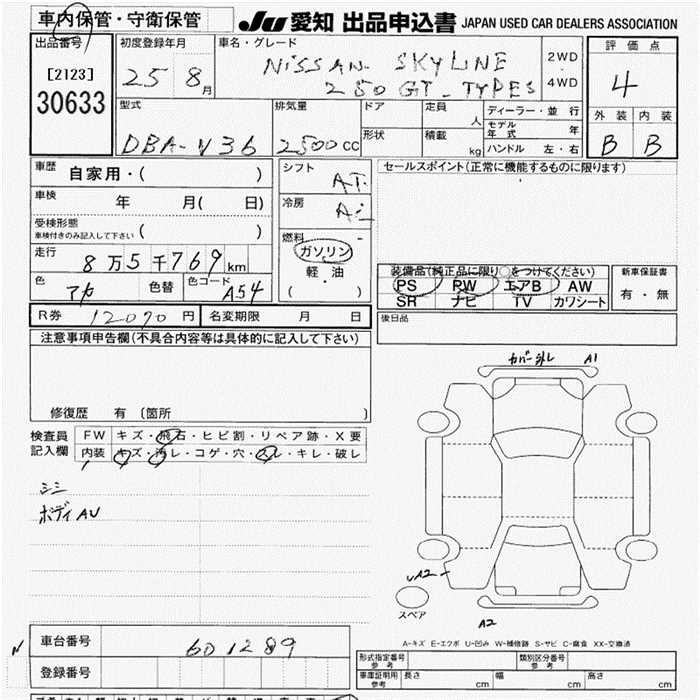 車内保管・守衛保管
JU 愛知 出品申込書 JAPAN USED CAR DEALERS ASSOCIATION
出品番号
[2123]
30633
初度登録年月
25 8月
車名・グレード
NISSAN SKYLINE
250 GT TYPES
2WD
・
4WD
評価点
4
外装 内装
B B
型式
DBA-V36
排気量
2500 CC
ドア
形状
定員
人
積載
kg
ディーラー・並行
モデル年式 年
ハンドル 左・右
車歴 自家用・( )
車検 年 月( 日)
受検形態
車検付きのみ記入して下さい ( )
走行 8万5千769km
色 アカ 色替 色コード A54
シフト AT
冷房 AC
燃料
ガソリン
軽・油
( )
セールスポイント(正常に機能するものに限ります)
装備品(純正品に限り○をつけてください)
PS PW エアB AW
SR ナビ TV カワシート
新車保証書
有・無
R券 12070 円 名変期限 月 日
後日品
注意事項申告欄(不具合内容等は具体的に記入して下さい)
修復歴 有 (箇所 )
検査員記入欄
FW キズ・飛石・ヒビ割・リペア跡・X要
内装 キズ・汚レ・コゲ・穴・スレ・キレ・破レ
シミ
ボディAU
カバー外レ A1
UA2
スペア
A2
A-キズ E-エクボ U-凹み W-補修跡 S-サビ C-腐食 XX-交換済
車台番号 601289
登録番号
N
形式指定番号 参考 類別区分番号 参考
車庫証明用 参考 長さ cm 幅 cm 高さ cm